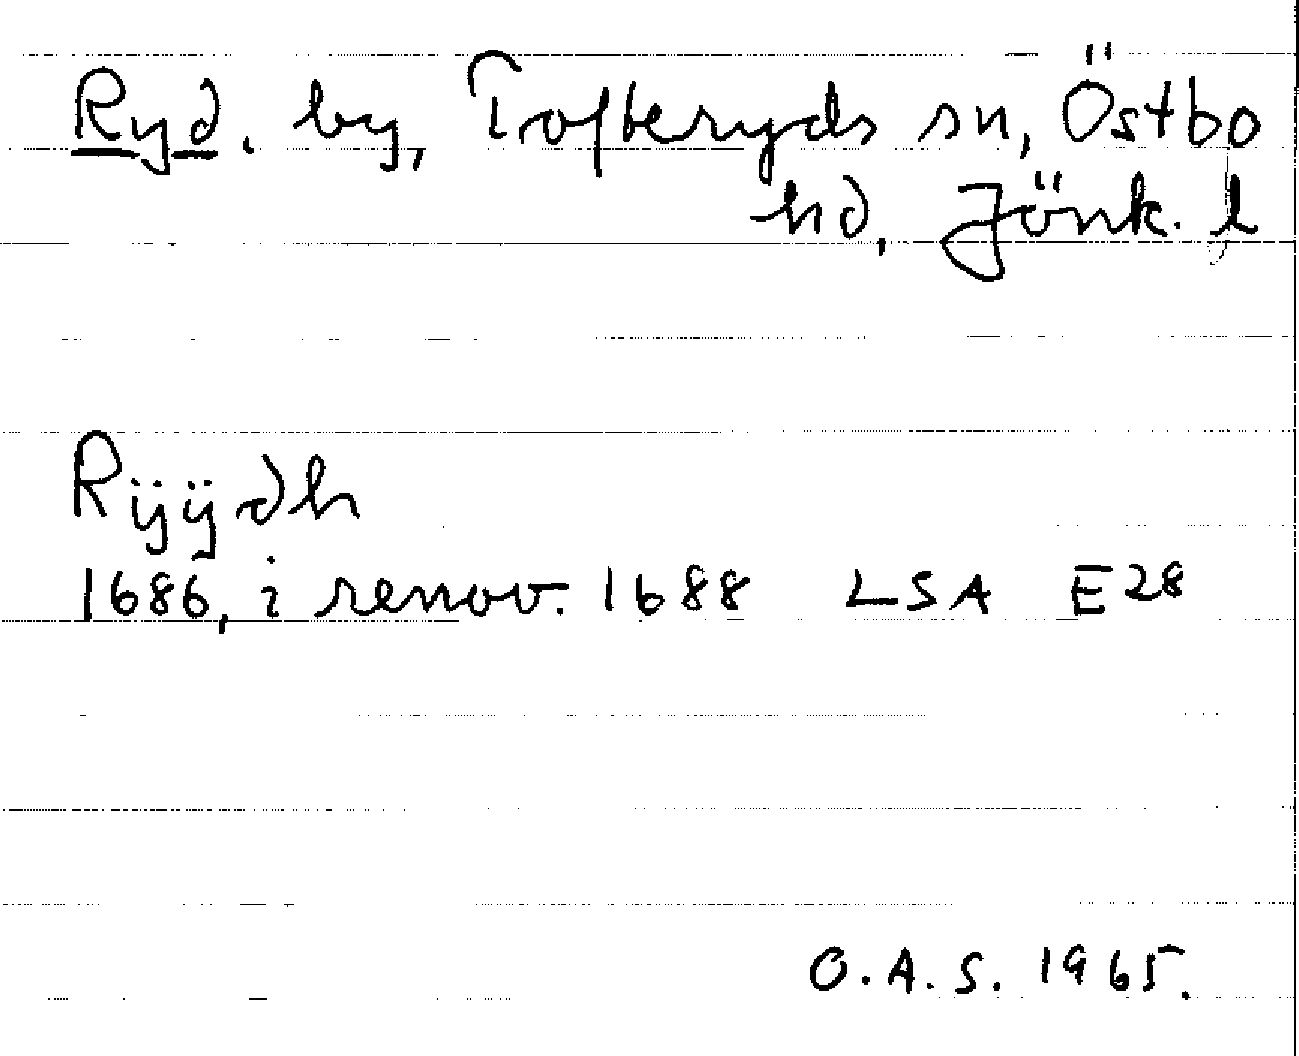 Ryd. by, Tofteryds sn, Östbo
hd, Jönk. l
Rÿÿdh
1686, i renov. 1688 LSA E28
O.A.S. 1965.